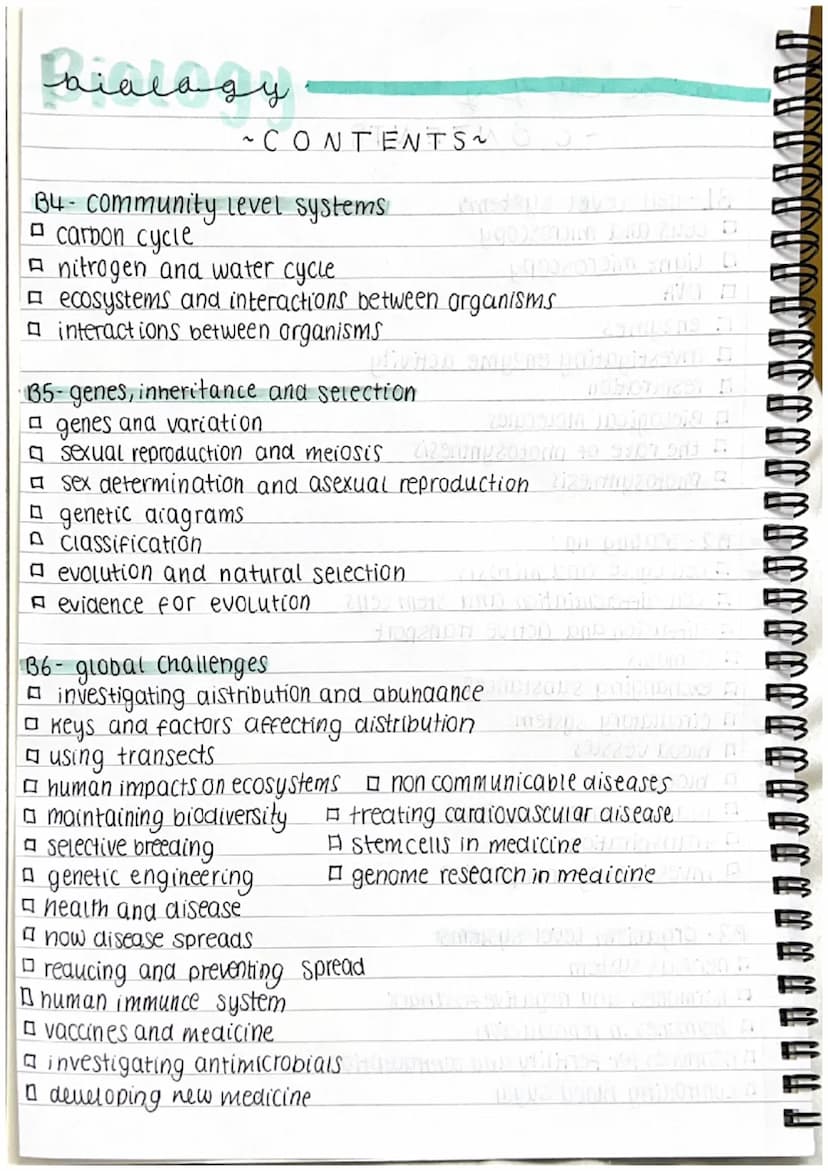 Biology
biology
~CONTENTS~
B4- community level systems
□ carbon cycle
□ nitrogen and water cycle
□ ecosystems and interactions between organisms
□ interactions between organisms
B5- genes, inheritance and selection
□ genes and variation
□ sexual reproduction and meiosis
□ sex determination and asexual reproduction
□ genetic diagrams
□ classification
□ evolution and natural selection
□ evidence for evolution
B6- global challenges
□ investigating distribution and abundance
□ keys and factors affecting distribution
□ using transects
□ human impacts on ecosystems □ non communicable diseases
□ maintaining biodiversity □ treating cardiovascular disease
□ selective breeding □ stem cells in medicine
□ genetic engineering □ genome research in medicine
□ health and disease
□ how disease spreads
□ reducing and preventing spread
□ human immunce system
□ vaccines and medicine
□ investigating antimicrobials
□ developing new medicine